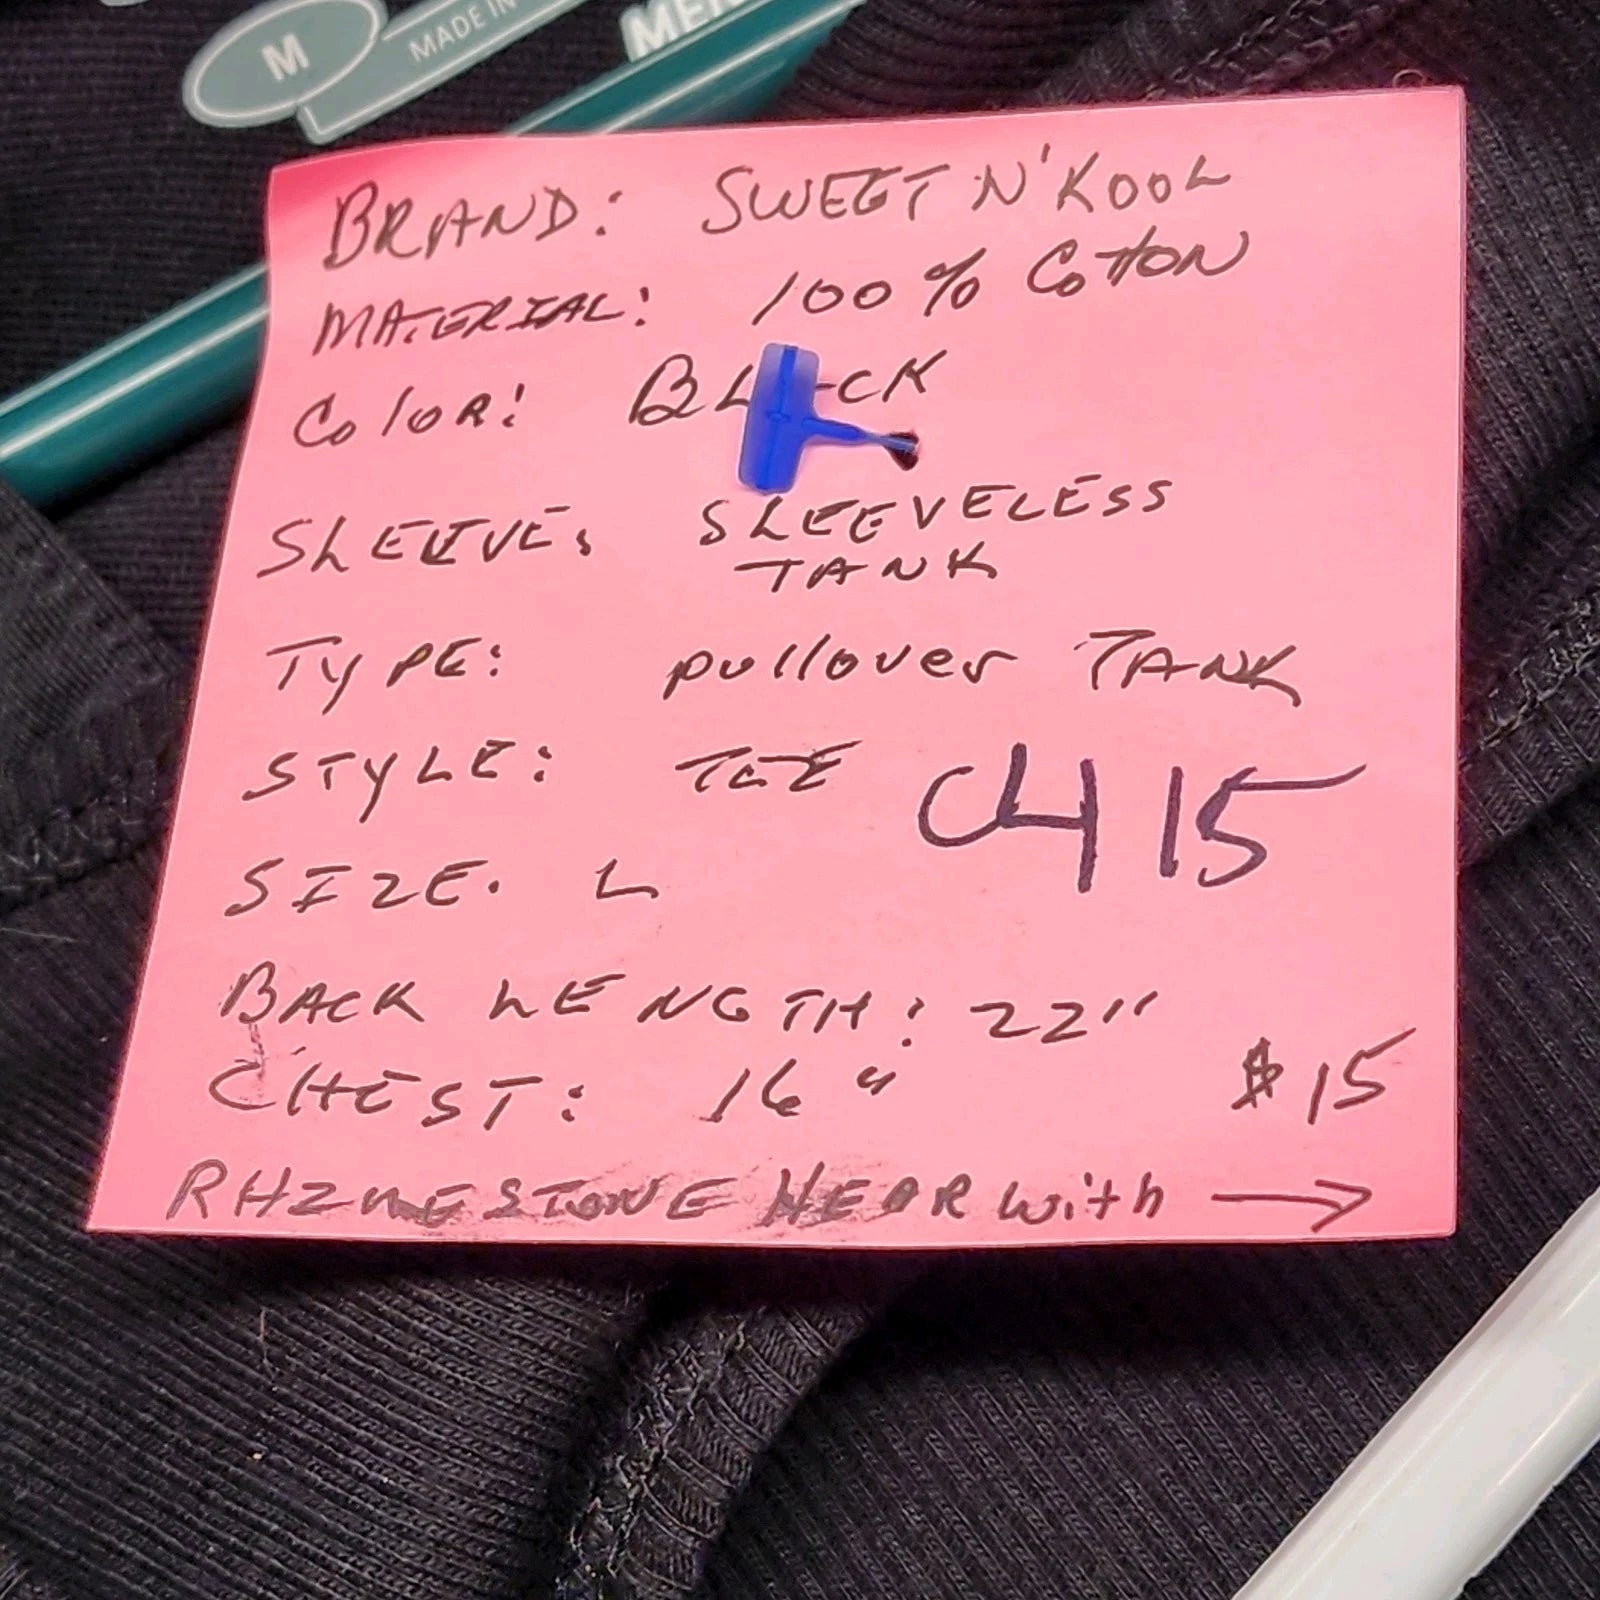 M
MADE IN
BRAND: SWEET N'KOOL
MATERIAL: 100% COttON
COlOR: BLACK
SLEEVE: SLEEVELESS
TANK
TYPE: pullover TANK
STYLE: TEE
C4 15
SIZE. L
BACK LENGTH: 22"
CHEST: 16"
$15
RHINESTONE HEAR with →